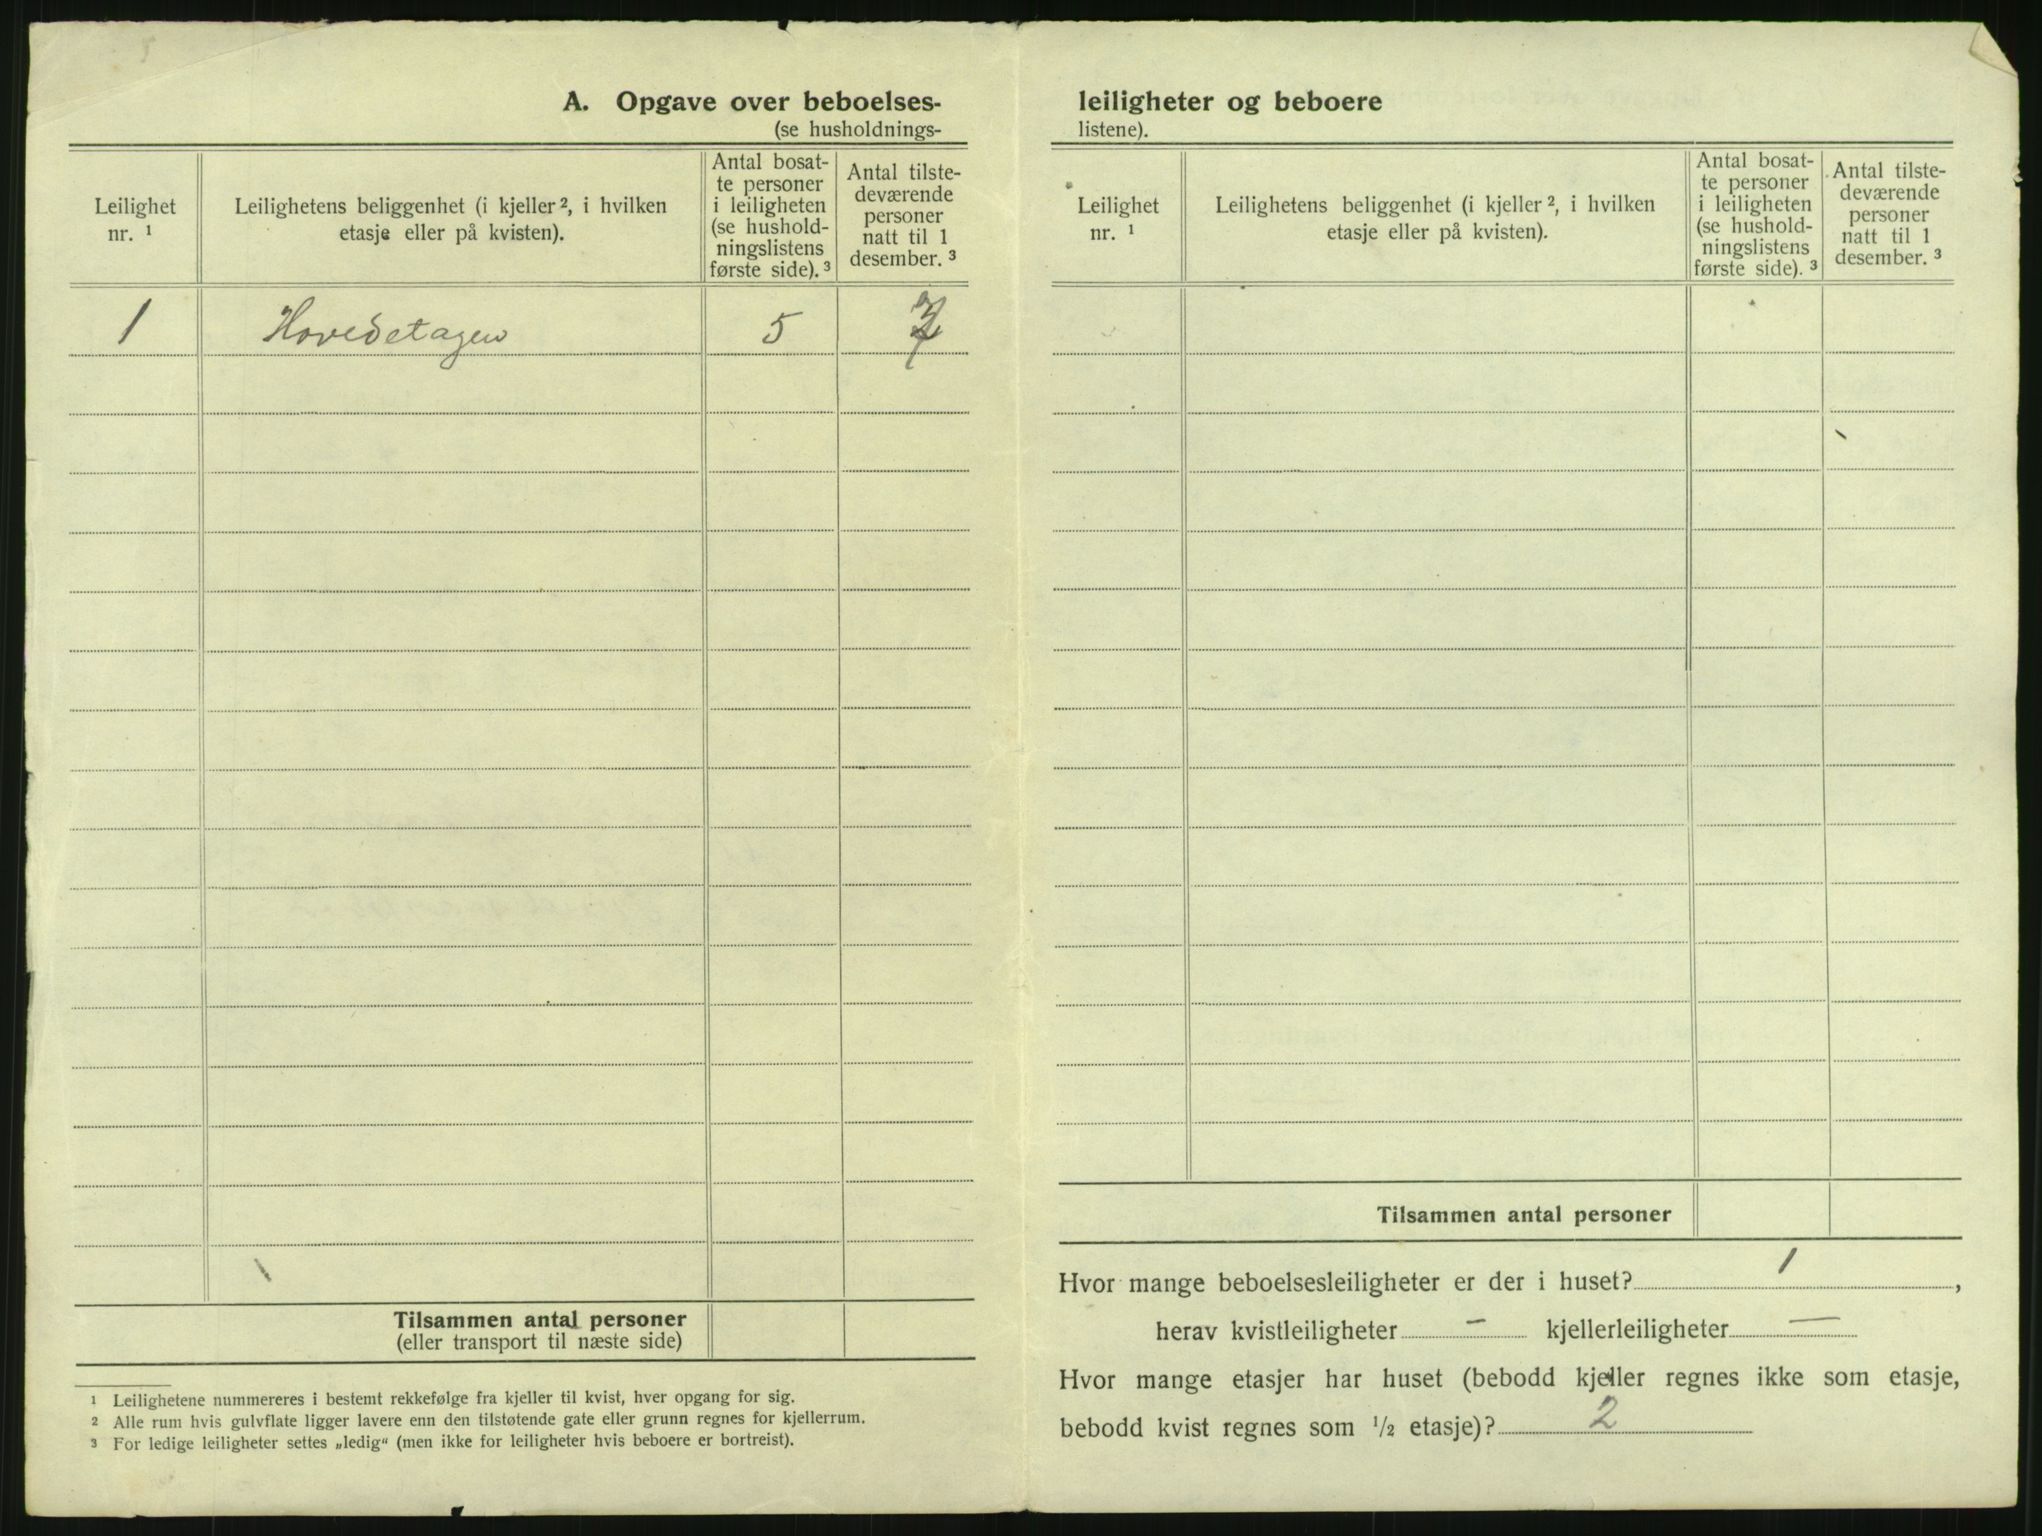 5
A. Opgave over beboelses-
(se husholdnings-
Leilighet nr. ¹
Leilighetens beliggenhet (i kjeller ², i hvilken etasje eller på kvisten).
Antal bosat-
te personer
i leiligheten
(se hushold-
ningslistens
første side). ³
Antal tilste-
deværende
personer
natt til 1
desember. ³
1 Hovedetagen 5
Tilsammen antal personer
(eller transport til næste side)
¹ Leilighetene nummereres i bestemt rekkefølge fra kjeller til kvist, hver opgang for sig.
² Alle rum hvis gulvflate ligger lavere enn den tilstøtende gate eller grunn regnes for kjellerrum.
³ For ledige leiligheter settes „ledig“ (men ikke for leiligheter hvis beboere er bortreist).
leiligheter og beboere
listene).
Leilighet nr. ¹
Leilighetens beliggenhet (i kjeller ², i hvilken etasje eller på kvisten).
Antal bosat-
te personer
i leiligheten
(se hushold-
ningslistens
første side). ³
Antal tilste-
deværende
personer
natt til 1
desember. ³
Tilsammen antal personer
Hvor mange beboelsesleiligheter er der i huset? 1,
herav kvistleiligheter – kjellerleiligheter –
Hvor mange etasjer har huset (bebodd kjeller regnes ikke som etasje,
bebodd kvist regnes som ½ etasje)? 2